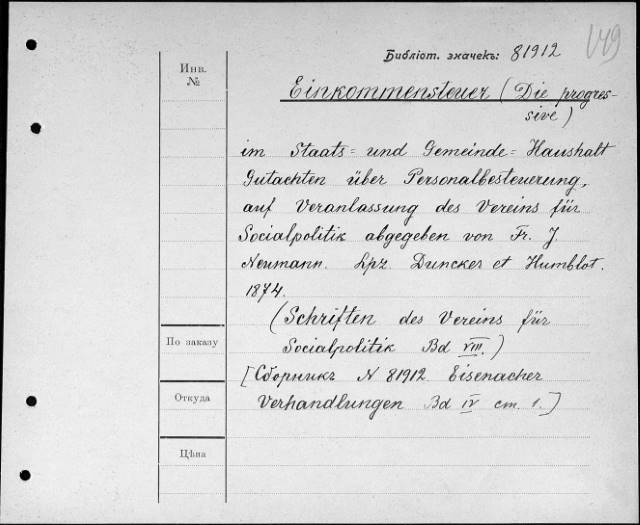 149
Библіот. значекъ: 81912
Инв.
№
Einkommensteuer (Die progres-
sive)
im Staats- und Gemeinde-Haushalt
Gutachten über Personalbesteuerung,
auf Veranlassung des Vereins für
Socialpolitik abgegeben von Fr. J.
Neumann. Lpz. Duncker et Humblot.
1874.
(Schriften des Vereins für
Socialpolitik Bd VIII.)
[Сборникъ N 81912 Eisenacher
Verhandlungen Bd IV cm. 1.]
По заказу
Откуда
Цѣна